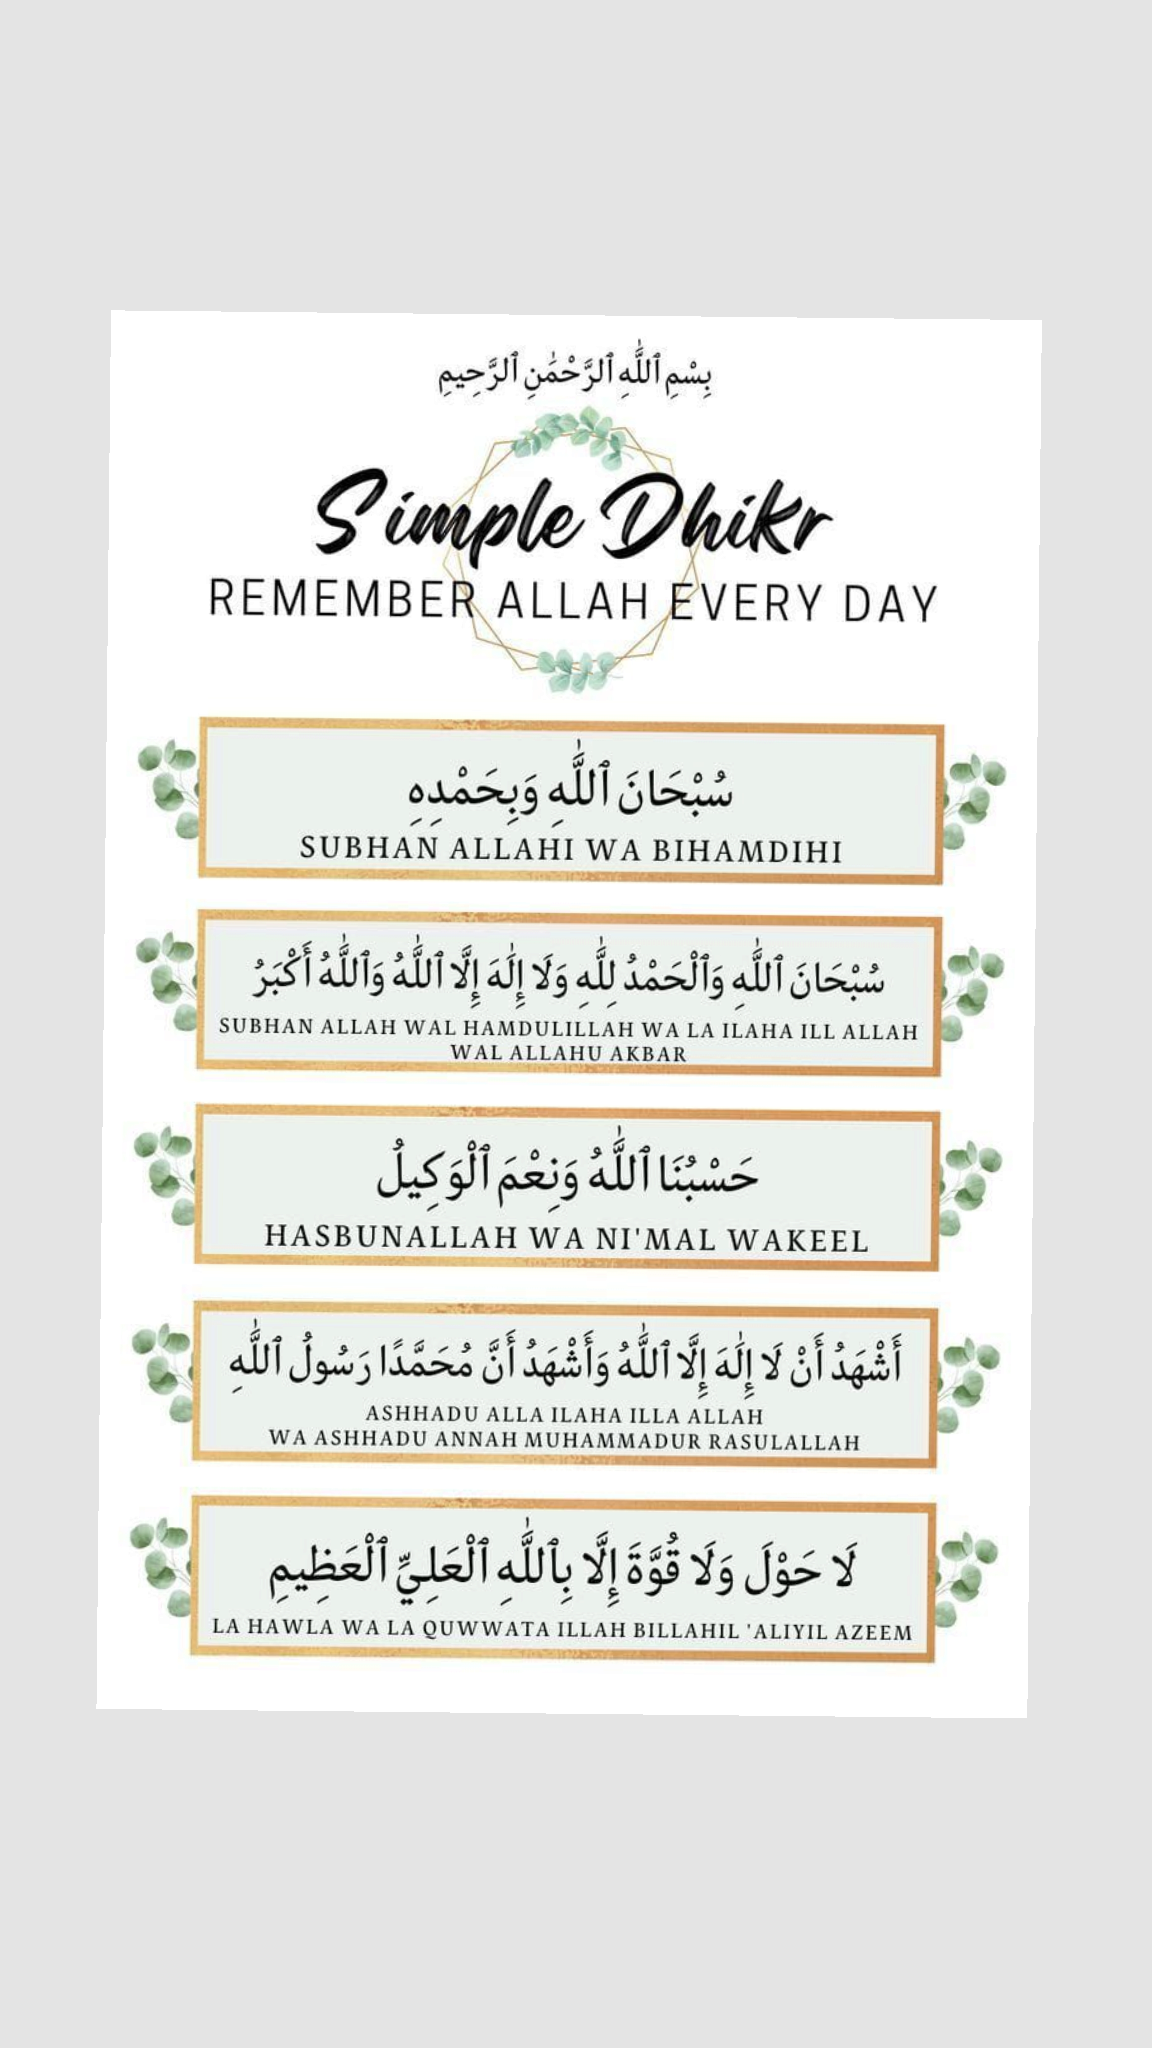 بِسْمِ ٱللَّٰهِ ٱلرَّحْمَٰنِ ٱلرَّحِيمِ
Simple Dhikr
REMEMBER ALLAH EVERY DAY
سُبْحَانَ ٱللَّٰهِ وَبِحَمْدِهِ
SUBHAN ALLAHI WA BIHAMDIHI
سُبْحَانَ ٱللَّٰهِ وَٱلْحَمْدُ لِلَّٰهِ وَلَا إِلَٰهَ إِلَّا ٱللَّٰهُ وَٱللَّٰهُ أَكْبَرُ
SUBHAN ALLAH WAL HAMDULILLAH WA LA ILAHA ILL ALLAH
WAL ALLAHU AKBAR
حَسْبُنَا ٱللَّٰهُ وَنِعْمَ ٱلْوَكِيلُ
HASBUNALLAH WA NI'MAL WAKEEL
أَشْهَدُ أَنْ لَا إِلَٰهَ إِلَّا ٱللَّٰهُ وَأَشْهَدُ أَنَّ مُحَمَّدًا رَسُولُ ٱللَّٰهِ
ASHHADU ALLA ILAHA ILLA ALLAH
WA ASHHADU ANNAH MUHAMMADUR RASULALLAH
لَا حَوْلَ وَلَا قُوَّةَ إِلَّا بِٱللَّٰهِ ٱلْعَلِيِّ ٱلْعَظِيمِ
LA HAWLA WA LA QUWWATA ILLAH BILLAHIL 'ALIYIL AZEEM